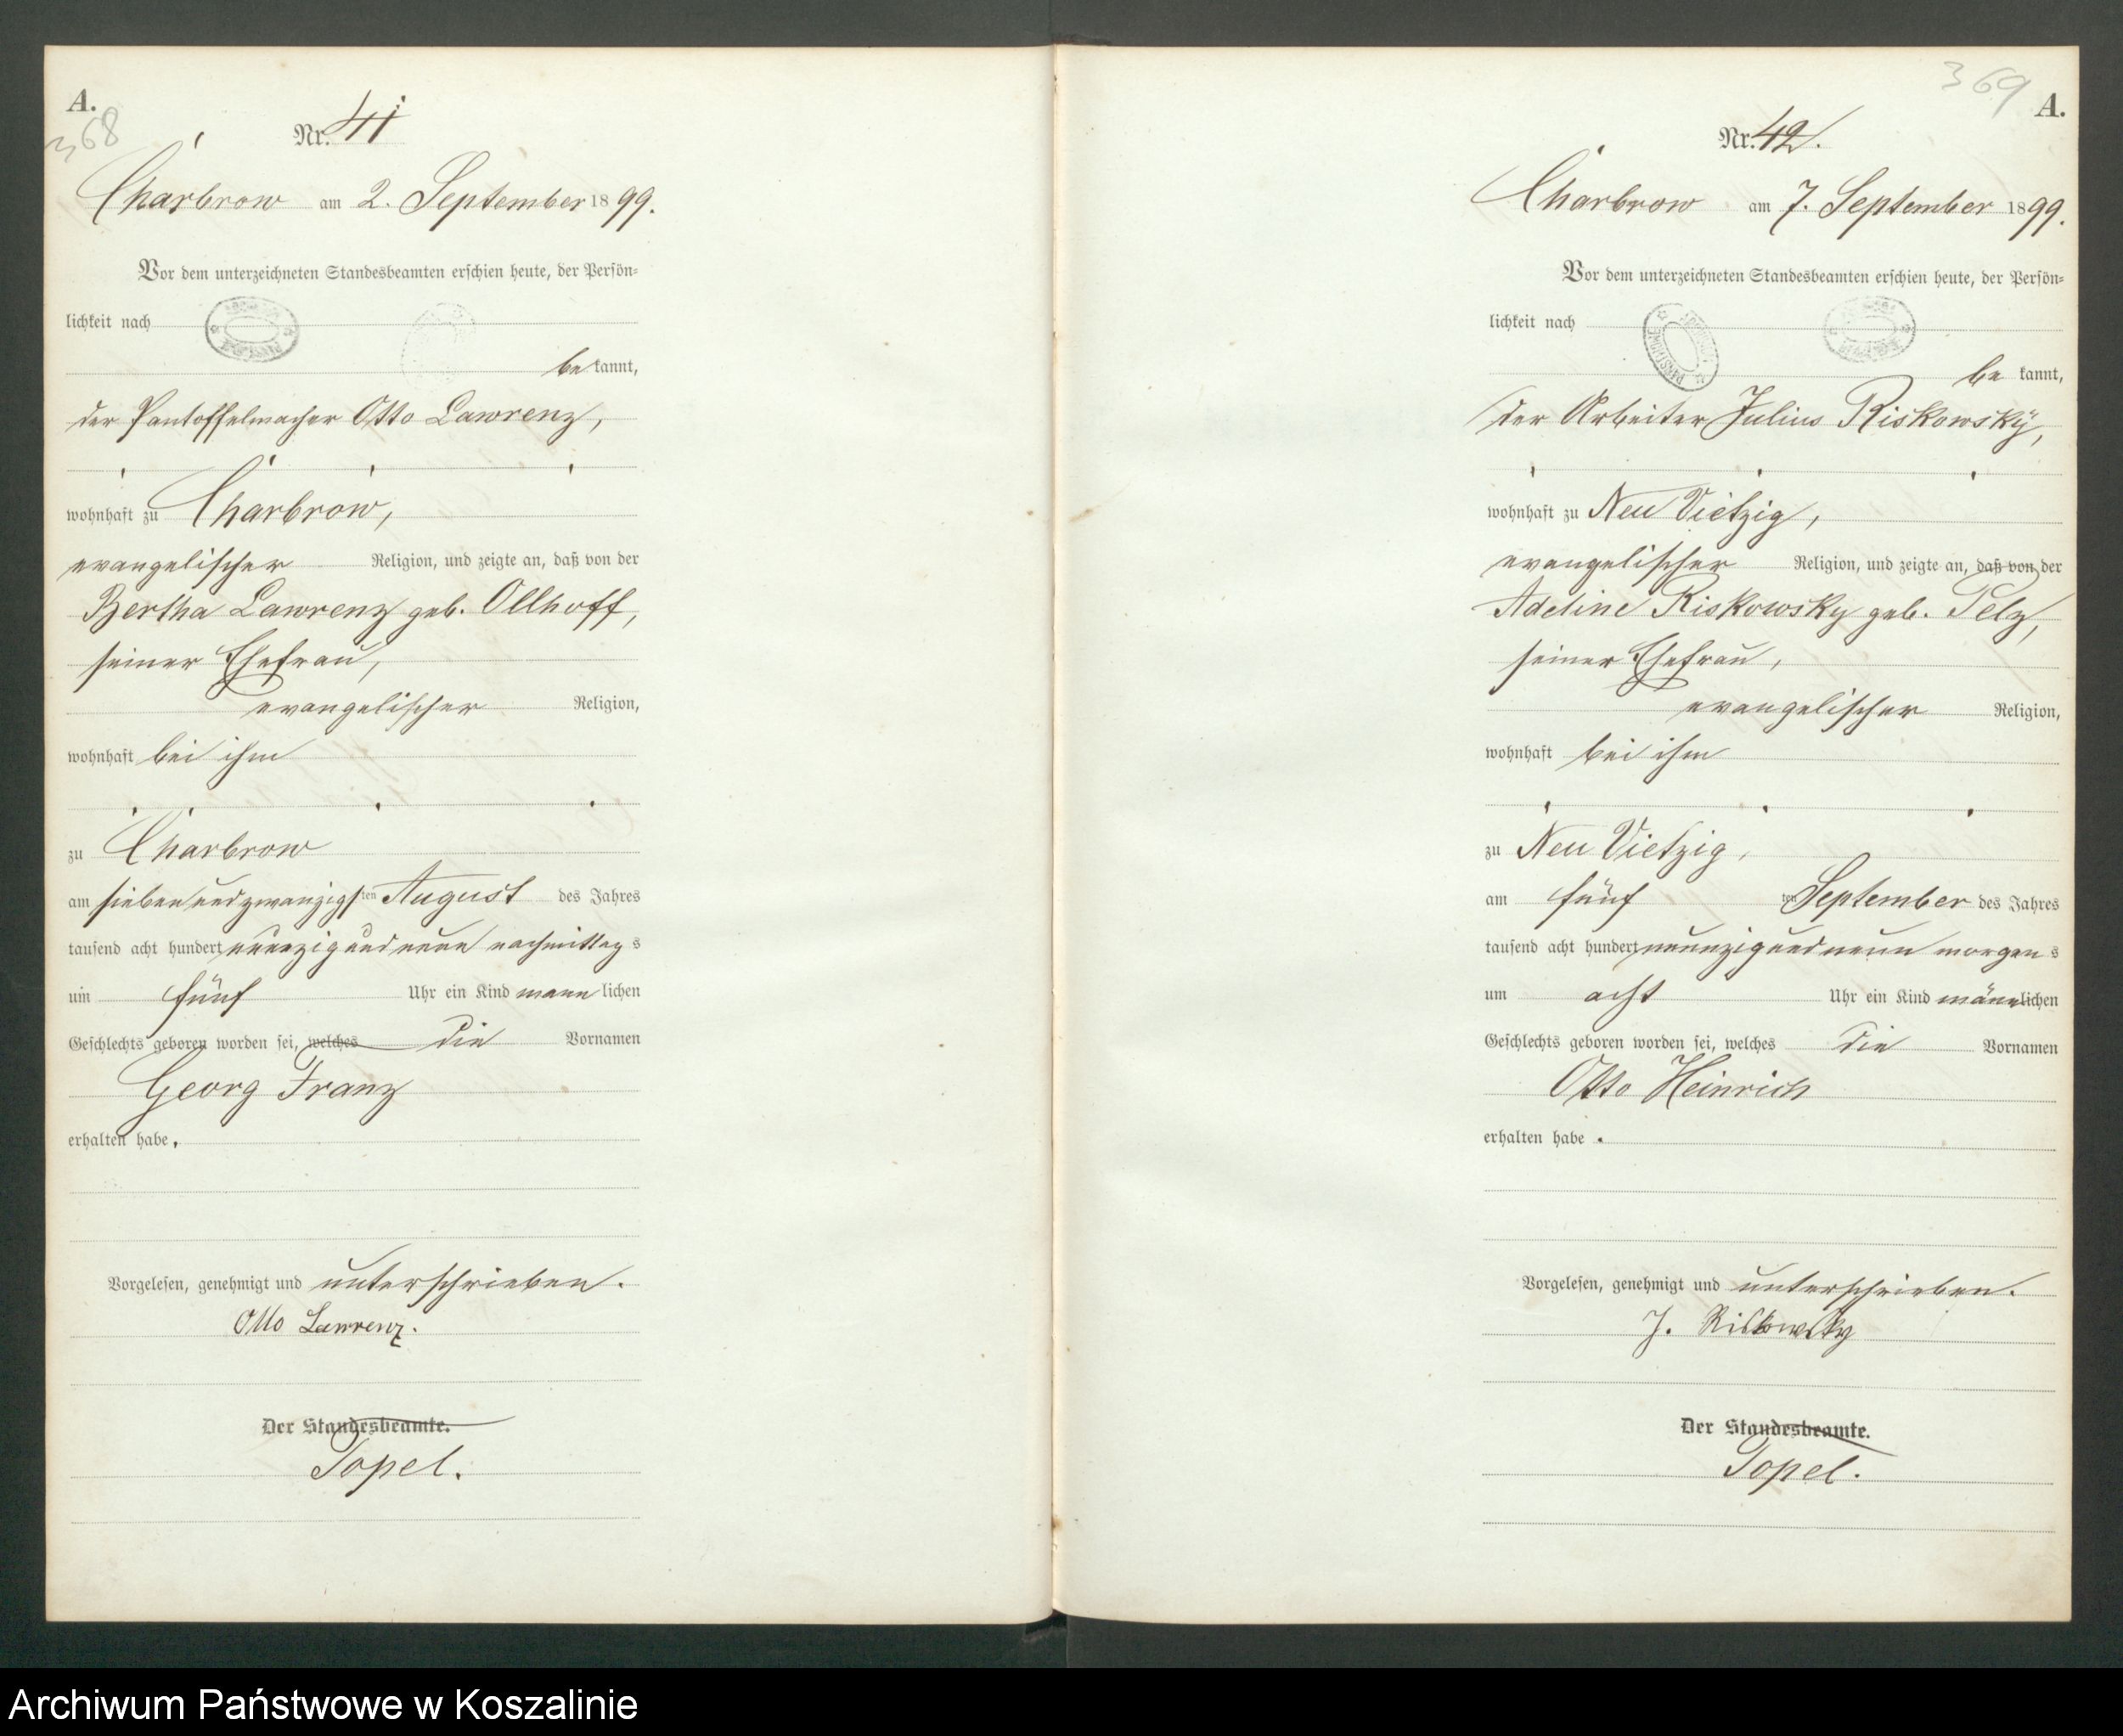 A.
368
Nr. 41
Charbrow am 2. September 1899.
Vor dem unterzeichneten Standesbeamten erschien heute, der Persön-
lichkeit nach
bekannt,
der Pantoffelmacher Otto Lawrenz,
wohnhaft zu Charbrow,
evangelischer Religion, und zeigte an, daß von der
Bertha Lawrenz geb. Ollhoff,
seiner Ehefrau,
evangelischer Religion,
wohnhaft bei ihm
zu Charbrow
am siebenundzwanzigsten August des Jahres
tausend acht hundert neunzig und neun nachmittags
um fünf Uhr ein Kind männlichen
Geschlechts geboren worden sei, welches die Vornamen
Georg Franz
erhalten habe.
Vorgelesen, genehmigt und unterschrieben.
Otto Lawrenz.
Der Standesbeamte.
Topel.
369
A.
Nr. 42.
Charbrow am 7. September 1899.
Vor dem unterzeichneten Standesbeamten erschien heute, der Persön-
lichkeit nach
bekannt,
der Arbeiter Julius Riskowsky,
wohnhaft zu Neu Vietzig,
evangelischer Religion, und zeigte an, daß von der
Adeline Riskowsky geb. Pelz,
seiner Ehefrau,
evangelischer Religion,
wohnhaft bei ihm
zu Neu Vietzig,
am fünften September des Jahres
tausend acht hundert neunzig und neun morgens
um acht Uhr ein Kind männlichen
Geschlechts geboren worden sei, welches die Vornamen
Otto Heinrich
erhalten habe.
Vorgelesen, genehmigt und unterschrieben.
J. Riskowsky
Der Standesbeamte.
Topel.
Archiwum Państwowe w Koszalinie